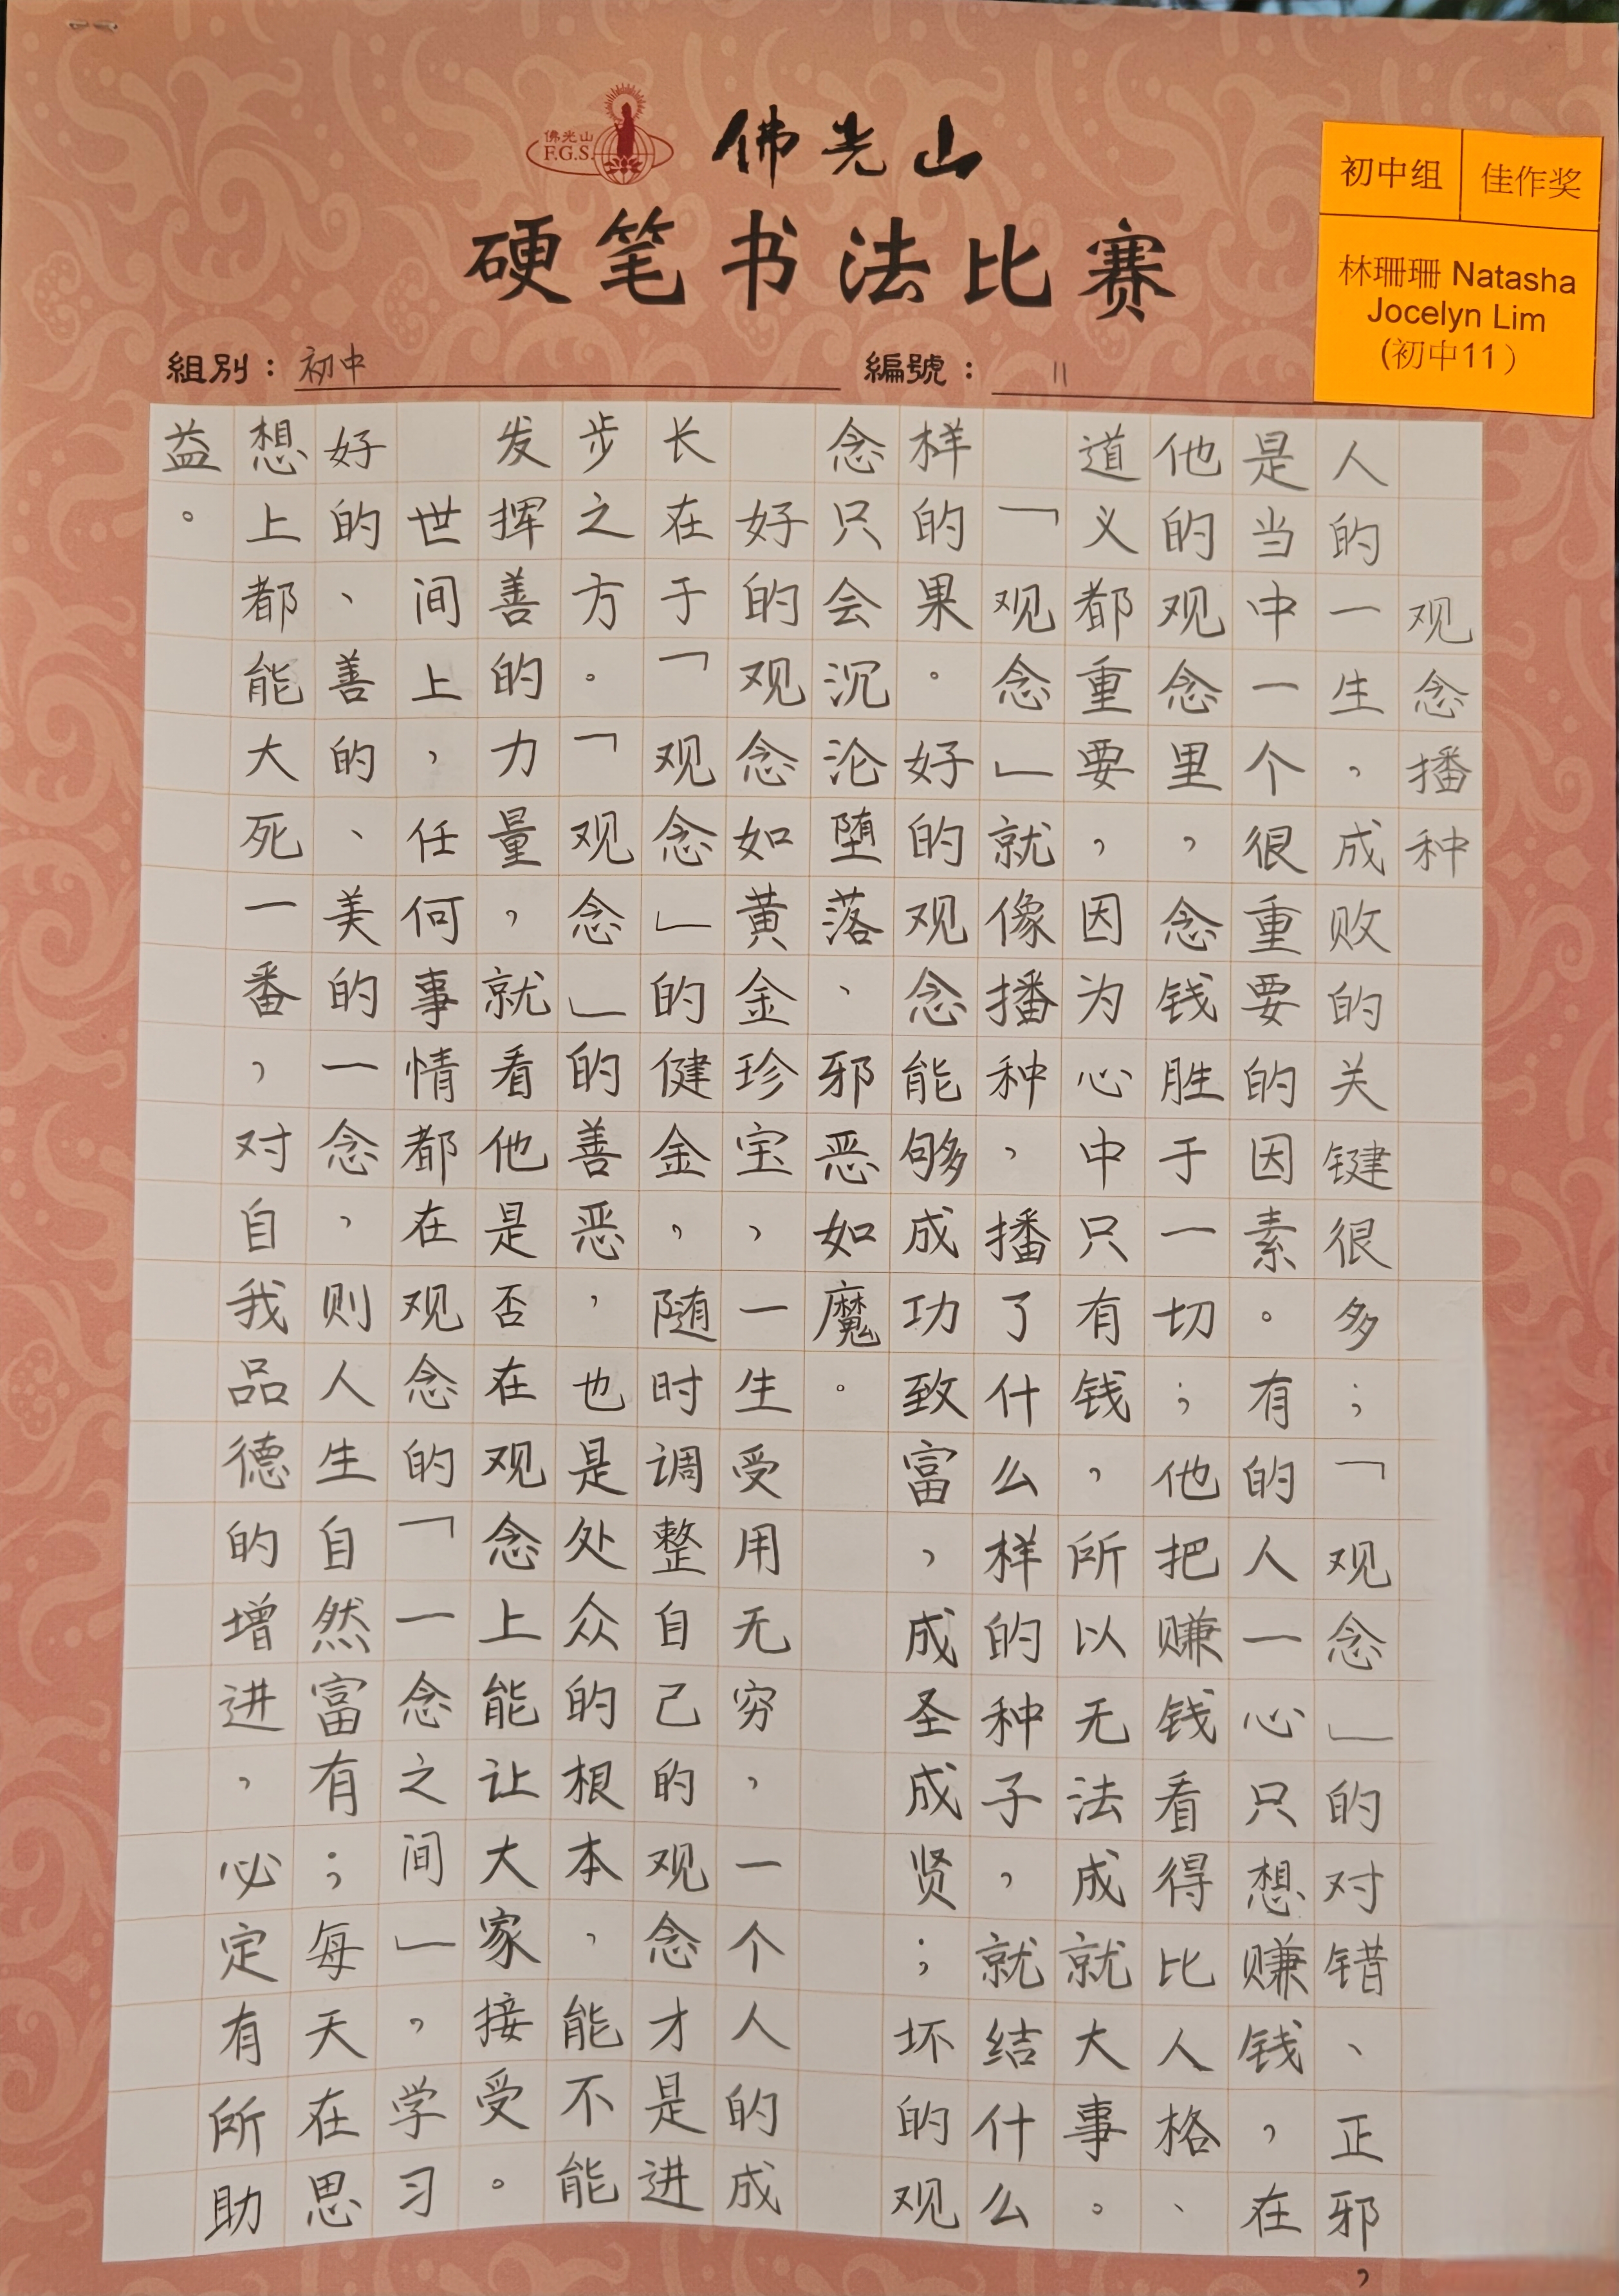 佛光山
F.G.S.
佛光山
硬笔书法比赛
初中组
佳作奖
林珊珊 Natasha
Jocelyn Lim
(初中11)
組別：初中
編號：11
观念播种
人的一生，成败的关键很多；「观念」的对错、正邪，
是当中一个很重要的因素。有的人一心只想赚钱，在
他的观念里，念钱胜于一切；他把赚钱看得比人格、
道义都重要，因为心中只有钱，所以无法成就大事。
「观念」就像播种，播了什么样的种子，就结什么
样的果。好的观念能够成功致富，成圣成贤；坏的观
念只会沉沦堕落、邪恶如魔。
好的观念如黄金珍宝，一生受用无穷，一个人的成
长在于「观念」的健金，随时调整自己的观念才是进
步之方。「观念」的善恶，也是处众的根本，能不能
发挥善的力量，就看他是否在观念上能让大家接受。
世间上，任何事情都在观念的「一念之间」，学习
好的、善的、美的一念，则人生自然富有；每天在思
想上都能大死一番，对自我品德的增进，必定有所助
益。